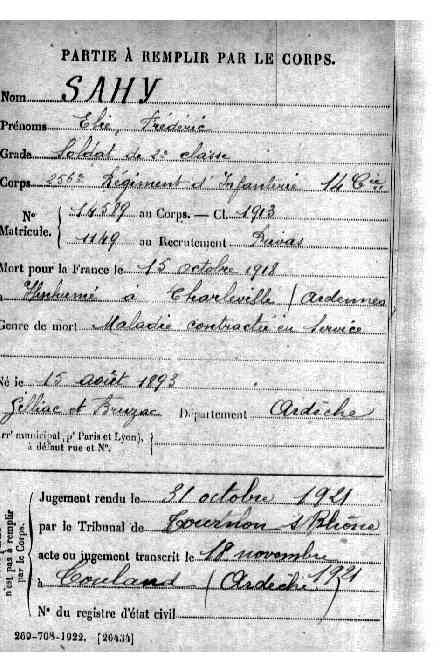 PARTIE À REMPLIR PAR LE CORPS.
Nom SAHY
Prénoms Elie, Frédéric
Grade Soldat de 2e classe
Corps 256e Régiment d'Infanterie 14 Cie
N° Matricule. { 14589 au Corps. — Cl. 1913
1149 au Recrutement Privas
Mort pour la France le 15 octobre 1918
à Inhumé à Charleville (Ardennes
Genre de mort Maladie contractée en Service
Né le 15 août 1893
Gilhac et Bruzac Département Ardèche
arrt municipal, pr Paris et Lyon), à défaut rue et N°.
n'est pas à remplir par le Corps.
Jugement rendu le 31 octobre 1921
par le Tribunal de Tournon s/Rhône
acte ou jugement transcrit le 18 novembre 1921
à (Ardèche)
N° du registre d'état civil
269-708-1922. [26434]